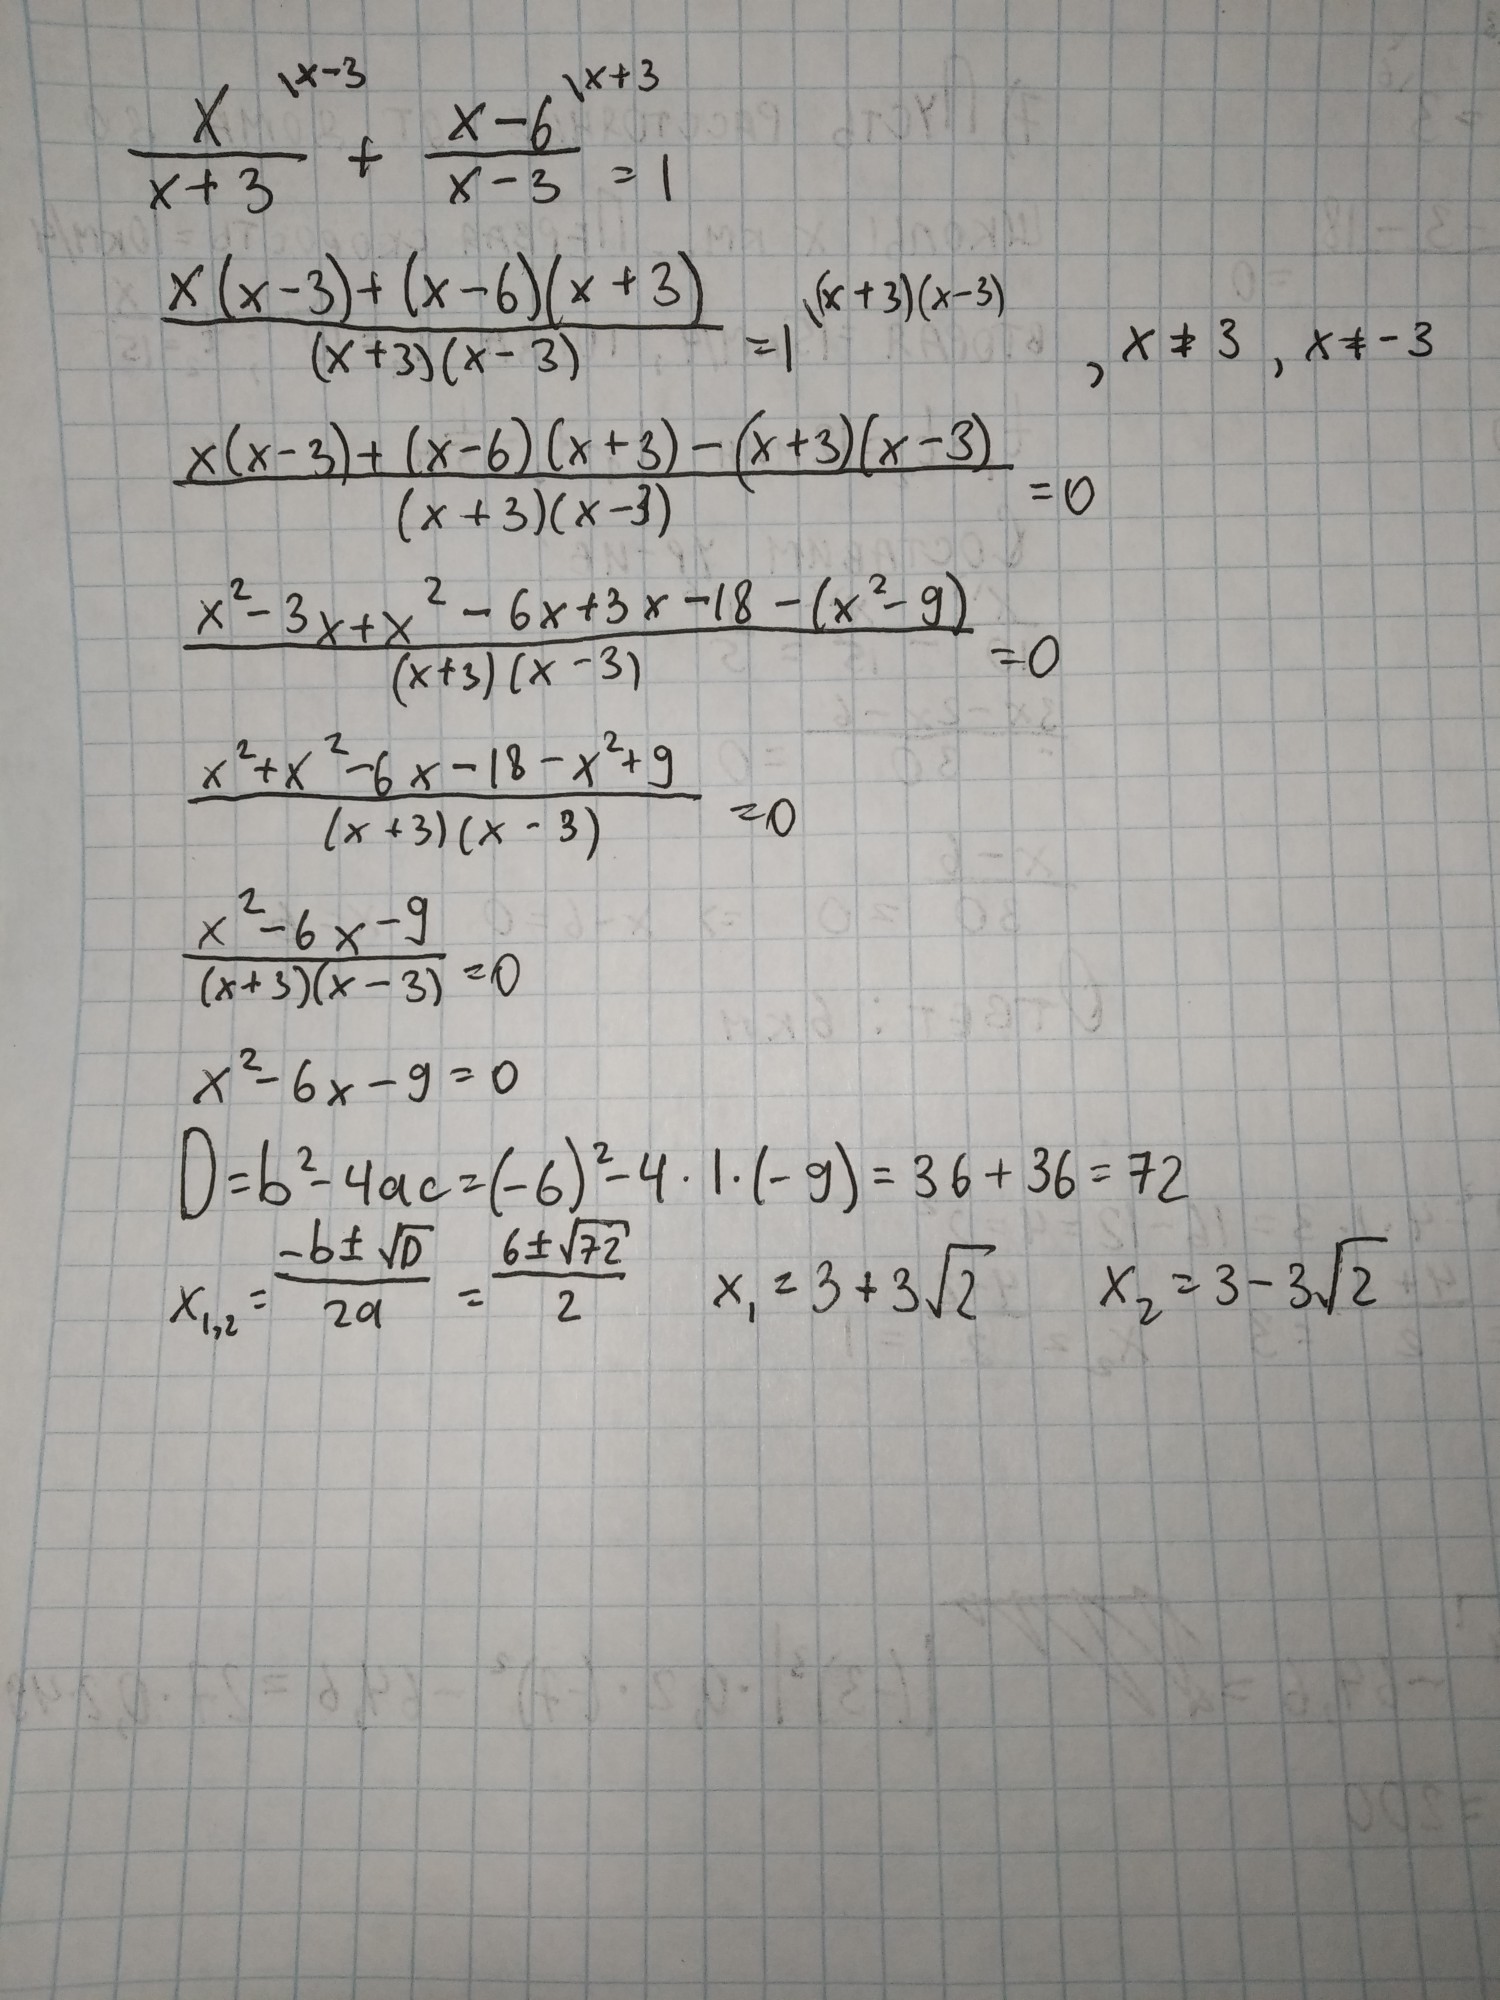 x/(x+3) \x-3 + (x-6)/(x-3) \x+3 = 1
(x(x-3)+(x-6)(x+3))/((x+3)(x-3)) = 1 \(x+3)(x-3) , x≠3, x≠-3
(x(x-3)+(x-6)(x+3)-(x+3)(x-3))/((x+3)(x-3)) = 0
(x²-3x+x²-6x+3x-18-(x²-9))/((x+3)(x-3)) = 0
(x²+x²-6x-18-x²+9)/((x+3)(x-3)) = 0
(x²-6x-9)/((x+3)(x-3)) = 0
x²-6x-9=0
D=b²-4ac=(-6)²-4·1·(-9)=36+36=72
x₁,₂ = (-b±√D)/(2a) = (6±√72)/2 x₁=3+3√2 x₂=3-3√2